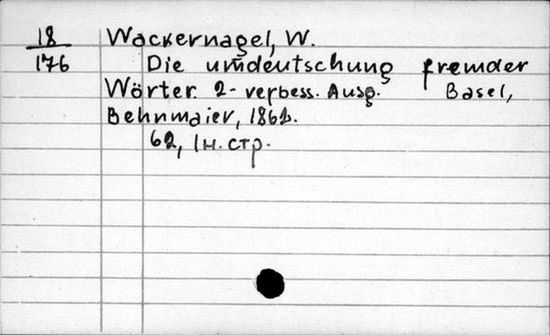 18 Wackernagel, W.
176 Die um̄deutschung fremder
Wörter. 2-verbess. Ausg. Basel,
Behnmaier, 1862.
62, 1 н. стр.